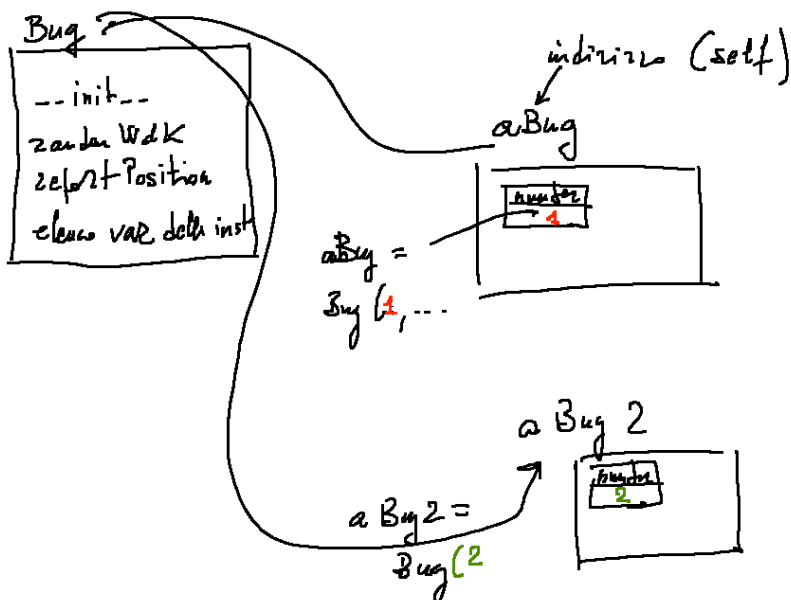 Bug
__init__
randomWalk
reportPosition
elenco var delle inst
indirizzo (self)
aBug
number
1
aBug =
Bug(1, ...
aBug2
number
2
aBug2 =
Bug(2